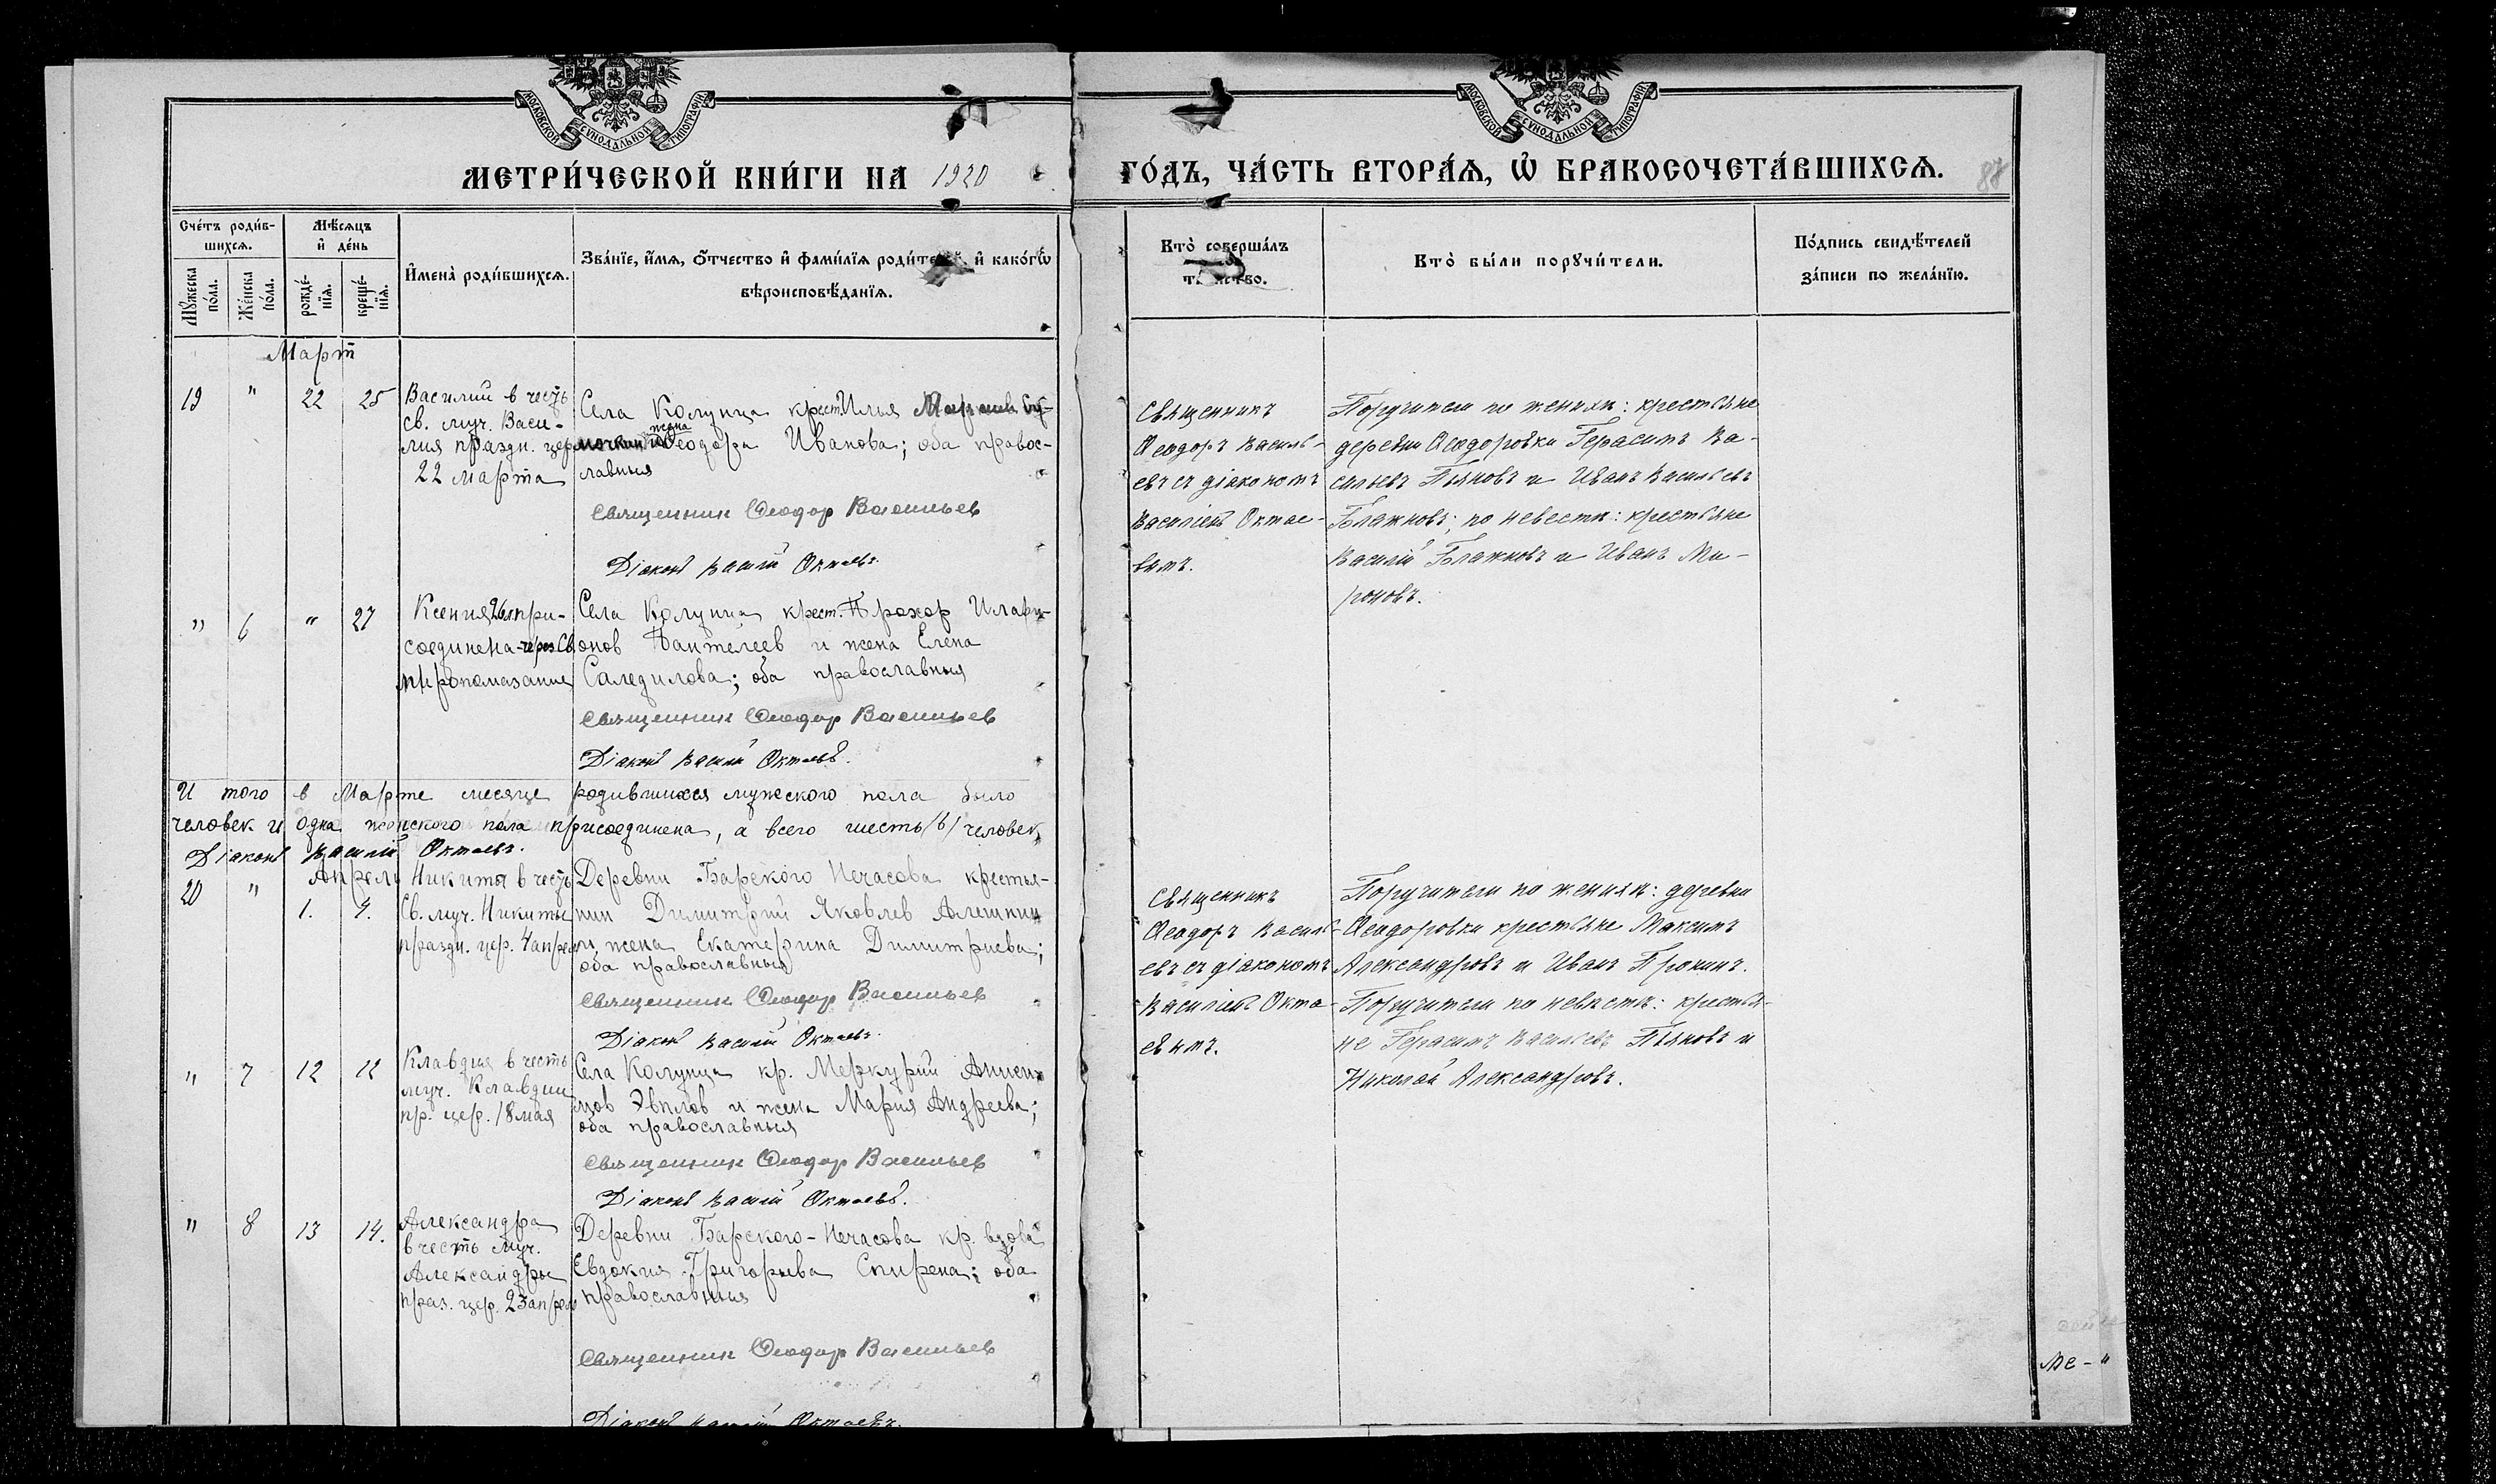 МОСКОВСКОЙ СѴНОДАЛЬНОЙ ТИПОГРАФІИ
МЕТРИ́ЧЕСКОЙ КНИ́ГИ НА 1920
Сче́тъ роди́в-
шихсѧ.
Мѣ́сѧцъ
и҆ де́нь
Мꙋ́жеска
по́ла.
Же́нска
по́ла.
рожде́-
нїѧ.
креще́-
нїѧ.
И҆мена̀ роди́вшихсѧ.
Зва́нїе, и҆́мѧ, ѻ҆́тчество и҆ фами́лїѧ роди́те и҆ како́гѡ
вѣроисповѣ́данїѧ.
Март
19 " 22 25
Василий в честь
св. муч. Васи-
лия праздн. цер
22 марта
Села Колунца крест. Илья
жена
Феодора Иванова; оба правос-
лавныя
Священник Феодор Васильев
Дiаконъ Василiй Октаевъ.
" 6 " 27
Ксения 26л. при-
соединена через Св.
миропомазание
Села Колунца крест. Прохор Илари-
онов Пантелеев и жена Елена
Саледилова; оба православныя
Священник Феодор Васильев
Дiаконъ Василiй Октаевъ.
И того в Марте месяце родившихся мужеского пола было
человек и одна женского пола присоединена, а всего шесть /6/ человек
Дiаконъ Василiй Октаевъ.
Апрель
20 " 1. 4.
Никита в честь
Св. муч. Никиты
праздн. цер. 4 апреля
Деревни Барского Нечасова крестья-
нин Димитрий Яковлев Алешкин
и жена Екатерина Димитриева;
оба православныя
Священник Феодор Васильев
Дiаконъ Василiй Октаевъ.
" 7 12 12
Клавдия в честь
муч. Клавдии
пр. цер. 18 мая
Села Колунца кр. Меркурий
Эвилов и жена Мария Андреева;
оба православныя
Священник Феодор Васильев
Дiаконъ Василiй Октаевъ.
" 8 13 14.
Александра
в честь муч.
Александры
праз. цер. 23 апреля
Деревни Барского-Нечасова кр. вдова
Евдокия Григорьева Спирена; оба
православныя
Священник Феодор Васильев
Дiаконъ Василiй Октаевъ.
МОСКОВСКОЙ СѴНОДАЛЬНОЙ ТИПОГРАФІИ
ГО́ДЪ, ЧА́СТЬ ВТОРА́Ѧ, Ѡ҆ БРАКОСОЧЕТА́ВШИХСѦ.
88
Кто̀ соверша́лъ
та нство.
Кто̀ бы́ли порꙋчи́тели.
По́дпись свидѣ́телей
за́писи по жела́нїю.
Священникъ
Феодоръ Василь-
евъ съ дiакономъ
Василiемъ Октае-
вымъ.
Поручители по женихѣ: крестьяне
деревни Феодоровки Герасимъ Ва-
сильевъ Пьяновъ и Иванъ Васильевъ
Блажновъ; по невестѣ: крестьяне
Василiй Блажновъ и Иванъ Ми-
роновъ.
Священникъ
Феодоръ Василь-
евъ съ дiакономъ
Василiемъ Окта-
евымъ.
Поручители по женихѣ: деревни
Феодоровки крестьяне Максимъ
Александровъ и Иванъ Пронинъ.
Поручители по невестѣ: крестья-
не Герасимъ Васильевъ Пьяновъ и
Николай Александровъ.